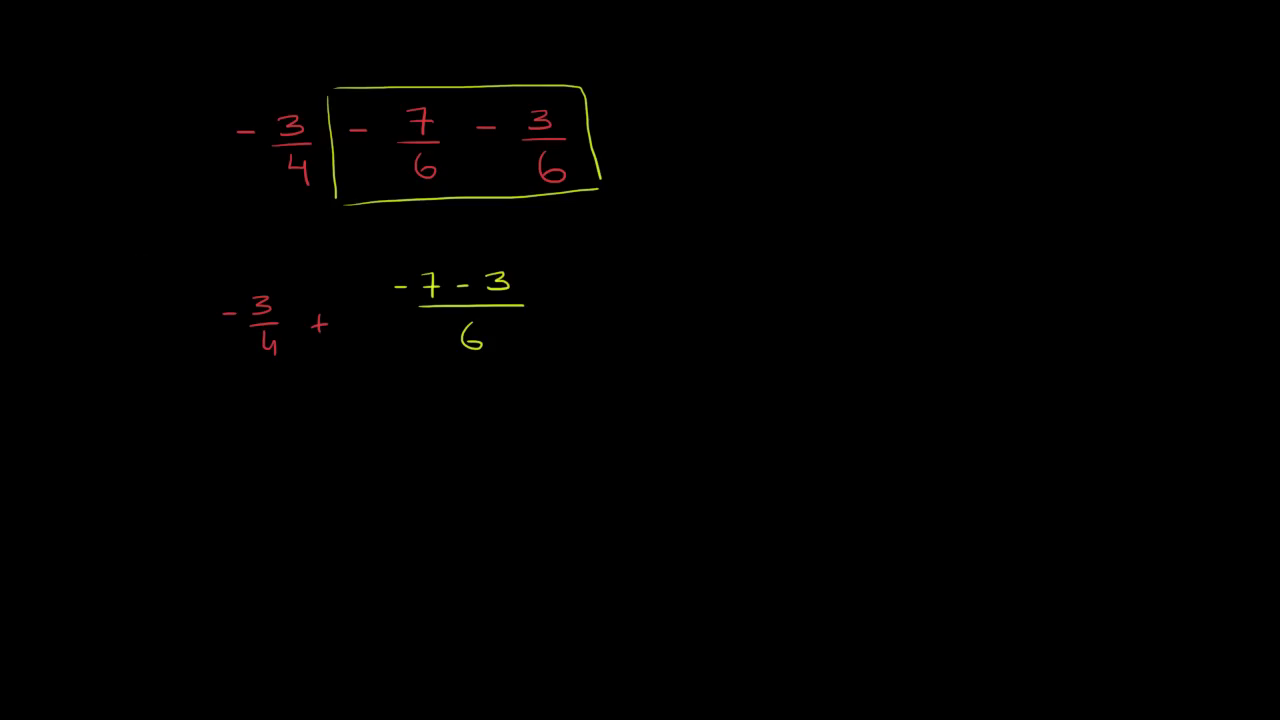 - 3/4 - 7/6 - 3/6
- 3/4 + (-7 - 3)/6